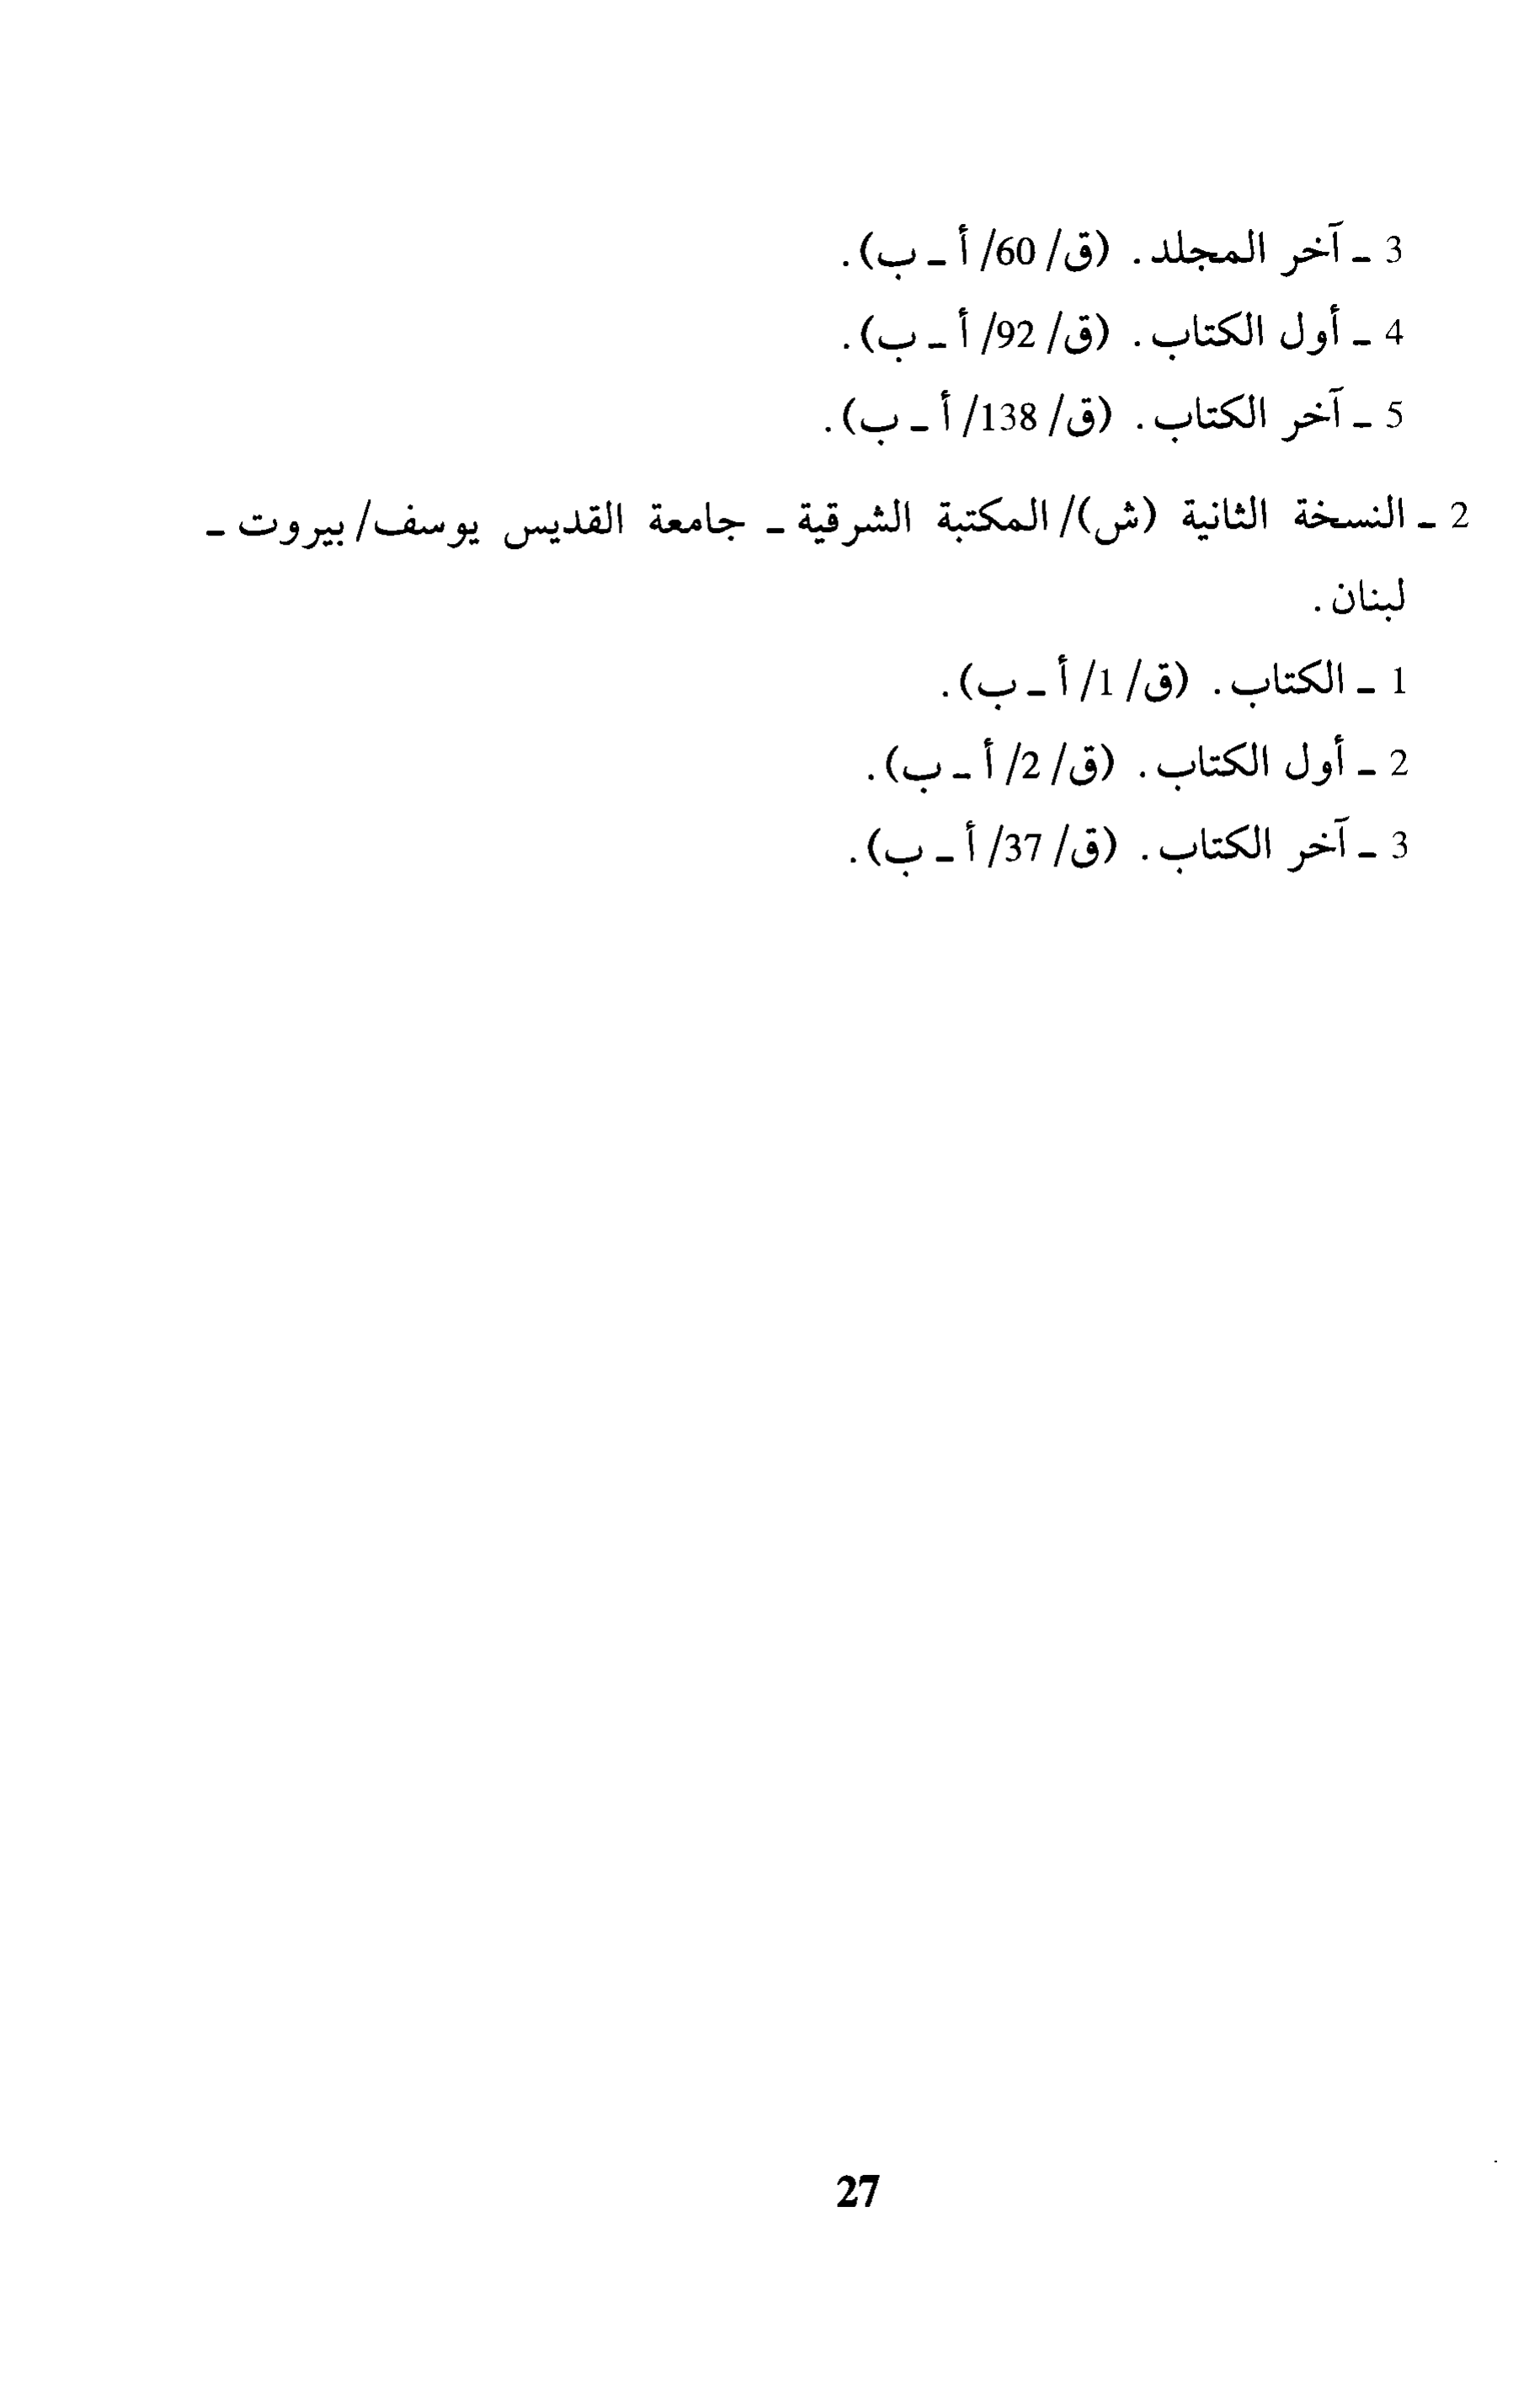 3 ـ آخر المجلد. (ق/ 60/ أ ـ ب).
4 ـ أول الكتاب. (ق/ 92/ أ ـ ب).
5 ـ آخر الكتاب. (ق/ 138/ أ ـ ب).
2 ـ النسخة الثانية (ش)/ المكتبة الشرقية ـ جامعة القديس يوسف/ بيروت ـ
لبنان.
1 ـ الكتاب. (ق/ 1/ أ ـ ب).
2 ـ أول الكتاب. (ق/ 2/ أ ـ ب).
3 ـ آخر الكتاب. (ق/ 37/ أ ـ ب).
27